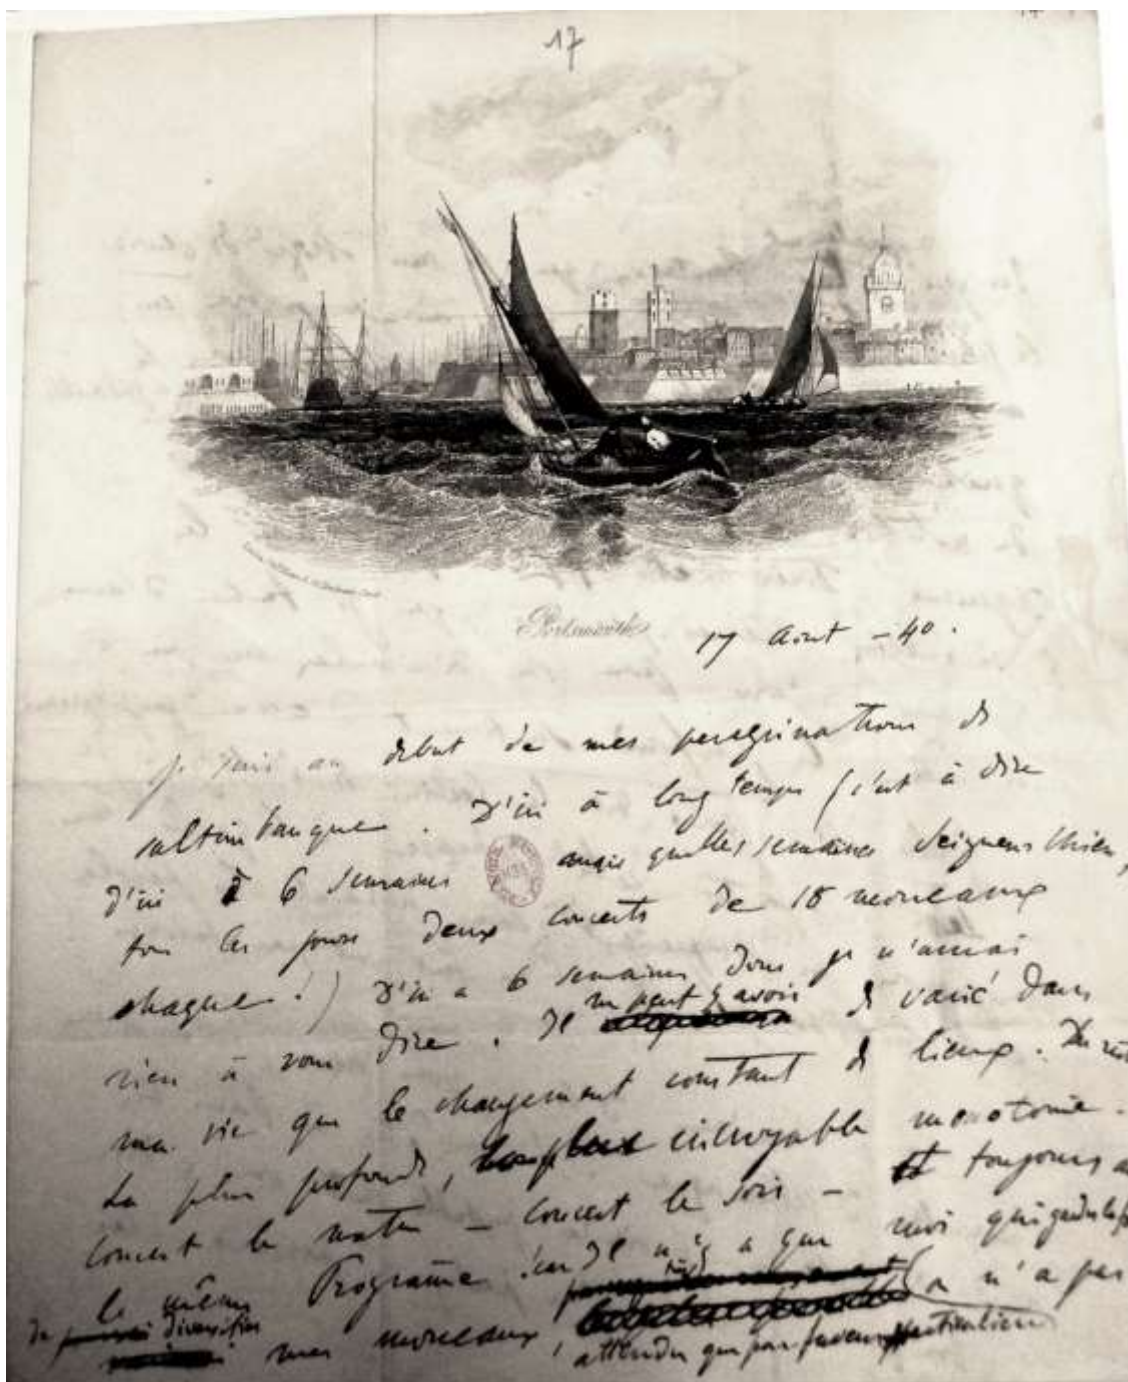 17
Portsmouth
17 Aout - 40.
je suis au debut de mes peregrinations de
saltimbanque. D'ici à long temps (c'est à dire
d'ici à 6 semaines mais quelles semaines Seigneur Dieu,
tous les jours deux concerts de 18 morceaux
chaque!) D'ici a 6 semaines donc je n'aurai
rien à vous dire. Il ne peut y avoir de varié dans
ma vie que le changement constant de lieux. Du reste
la plus profonde, la plus incroyable monotonie.
Concert le matin - Concert le soir - et toujours
le même Programme car il n'y a que moi qui
de diversifier mes morceaux, a n'a pas
attendu que par faveur particulière